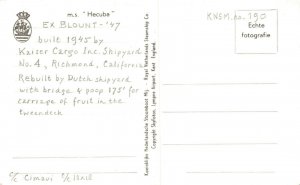 m.s. "Hecuba"
EX BLOUNT - '47
built 1945 by
Kaiser Cargo Inc. Shipyard
No. 4, Richmond, California
Rebuilt by Dutch shipyard
with bridge & poop 175' for
carriage of fruit in the
tweendeck
Koninklijke Nederlandsche Stoomboot Mij. - Royal Netherlands Steamship Co
Copyright Skyfotos, Lympne Airport, Kent England.
KNSM. no. 190
Echte
fotografie